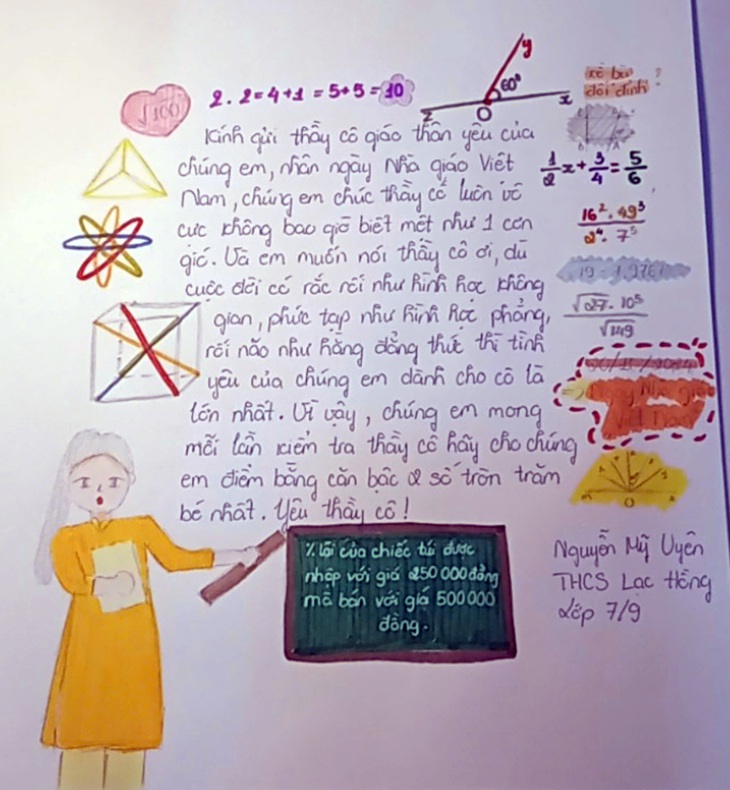 √100
2.2=4+1=5+5=10
y
60°
z O x
kề bù
đối đỉnh ?
Kính gửi thầy cô giáo thân yêu của
chúng em, nhân ngày Nhà giáo Việt
Nam, chúng em chúc thầy cô luôn vô
cực không bao giờ biết mệt như 1 cơn
gió. Và em muốn nói thầy cô ơi, dù
cuộc đời có rắc rối như hình học không
gian, phức tạp như hình học phẳng,
rối não như hằng đẳng thức thì tình
yêu của chúng em dành cho cô là
lớn nhất. Vì vậy, chúng em mong
mỗi lần kiểm tra thầy cô hãy cho chúng
em điểm bằng căn bậc 2 số tròn trăm
bé nhất. Yêu thầy cô!
1/2x+3/4=5/6
16².49³
2⁴.7⁵
√27.10⁵
√149
Ngày Nhà giáo
Việt Nam
O
% lãi của chiếc túi được
nhập với giá 250 000 đồng
mà bán với giá 500 000
đồng.
Nguyễn Mỹ Uyên
THCS Lạc Hồng
Lớp 7/9